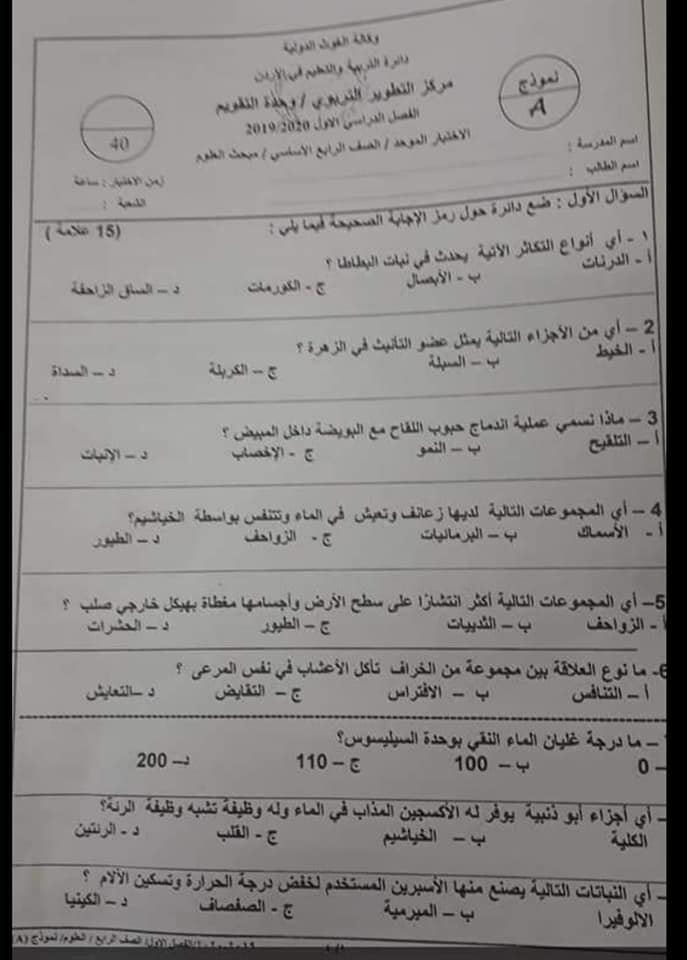 وكالة الغوث الدولية
دائرة التربية والتعليم في الأردن
مركز التطوير التربوي / وحدة التقويم
الفصل الدراسي الأول 2019/2020
الاختبار الموحد / الصف الرابع الأساسي / مبحث العلوم
نموذج
A
40
اسم المدرسة :
اسم الطالب :
زمن الاختبار : ساعة
الشعبة :
السؤال الأول : ضع دائرة حول رمز الإجابة الصحيحة فيما يلي : (15 علامة )
١ - أي أنواع التكاثر الآتية يحدث في نبات البطاطا ؟
أ - الدرنات ب - الأبصال ج - الكورمات د – الساق الزاحفة
2 – أي من الأجزاء التالية يمثل عضو التأنيث في الزهرة ؟
أ - الخيط ب – السبلة ج – الكربلة د – السداة
3 – ماذا نسمي عملية اندماج حبوب اللقاح مع البويضة داخل المبيض ؟
أ – التلقيح ب – النمو ج - الإخصاب د – الإنبات
4 – أي المجموعات التالية لديها زعانف وتعيش في الماء وتتنفس بواسطة الخياشيم؟
أ - الأسماك ب – البرمائيات ج - الزواحف د – الطيور
5– أي المجموعات التالية أكثر انتشارًا على سطح الأرض وأجسامها مغطاة بهيكل خارجي صلب ؟
أ - الزواحف ب – الثدييات ج – الطيور د – الحشرات
6- ما نوع العلاقة بين مجموعة من الخراف تأكل الأعشاب في نفس المرعى ؟
أ – التنافس ب – الافتراس ج – التقايض د –التعايش
– ما درجة غليان الماء النقي بوحدة السيليسوس؟
– 0 ب – 100 ج – 110 د– 200
– أي أجزاء أبو ذنيبة يوفر له الأكسجين المذاب في الماء وله وظيفة تشبه وظيفة الرئة؟
الكلية ب – الخياشيم ج - القلب د - الرئتين
– أي النباتات التالية يصنع منها الأسبرين المستخدم لخفض درجة الحرارة وتسكين الآلام ؟
الالوفيرا ب – الميرمية ج - الصفصاف د – الكينيا
الفصل الاول/ الصف الرابع / العلوم/ نموذج (A)